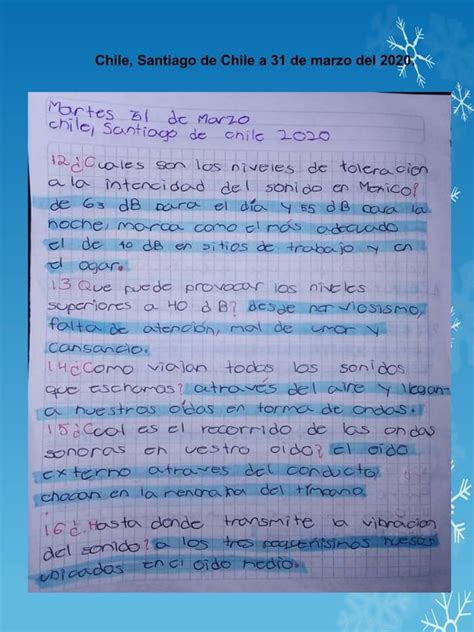 Chile, Santiago de Chile a 31 de marzo del 2020.
Martes 31 de Marzo
Chile, Santiago de Chile 2020
12 ¿Cuales son los niveles de toleracion
a la intencidad del sonido en Mexico?
de 63 dB para el día y 55 dB para la
noche, marca como el más adecuado
el de 40 dB en sitios de trabajo y en
el ogar.
13 Que puede provocar los niveles
superiores a 40 dB? desde nerviosismo,
falta de atención, mal de umor y
cansancio.
14 ¿Como viajan todos los sonidos
que eschamos? através del aire y llegan
a nuestros oídos en forma de ondas.
15 ¿Cual es el recorrido de las ondas
sonoras en vestro oido? el oido
externo atraves del conducto,
chocan en la menbrana del tímpano.
16 ¿Hasta donde transmite la vibracion
del sonido? a los tres pequeñisimos huesos
ubicados en el oido medio.